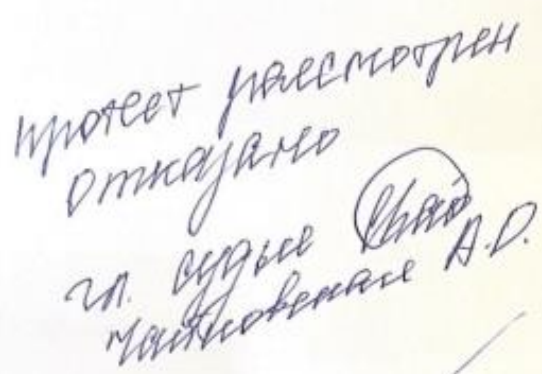 протест рассмотрен
отказано
гл. судья
Чайковская А.О.